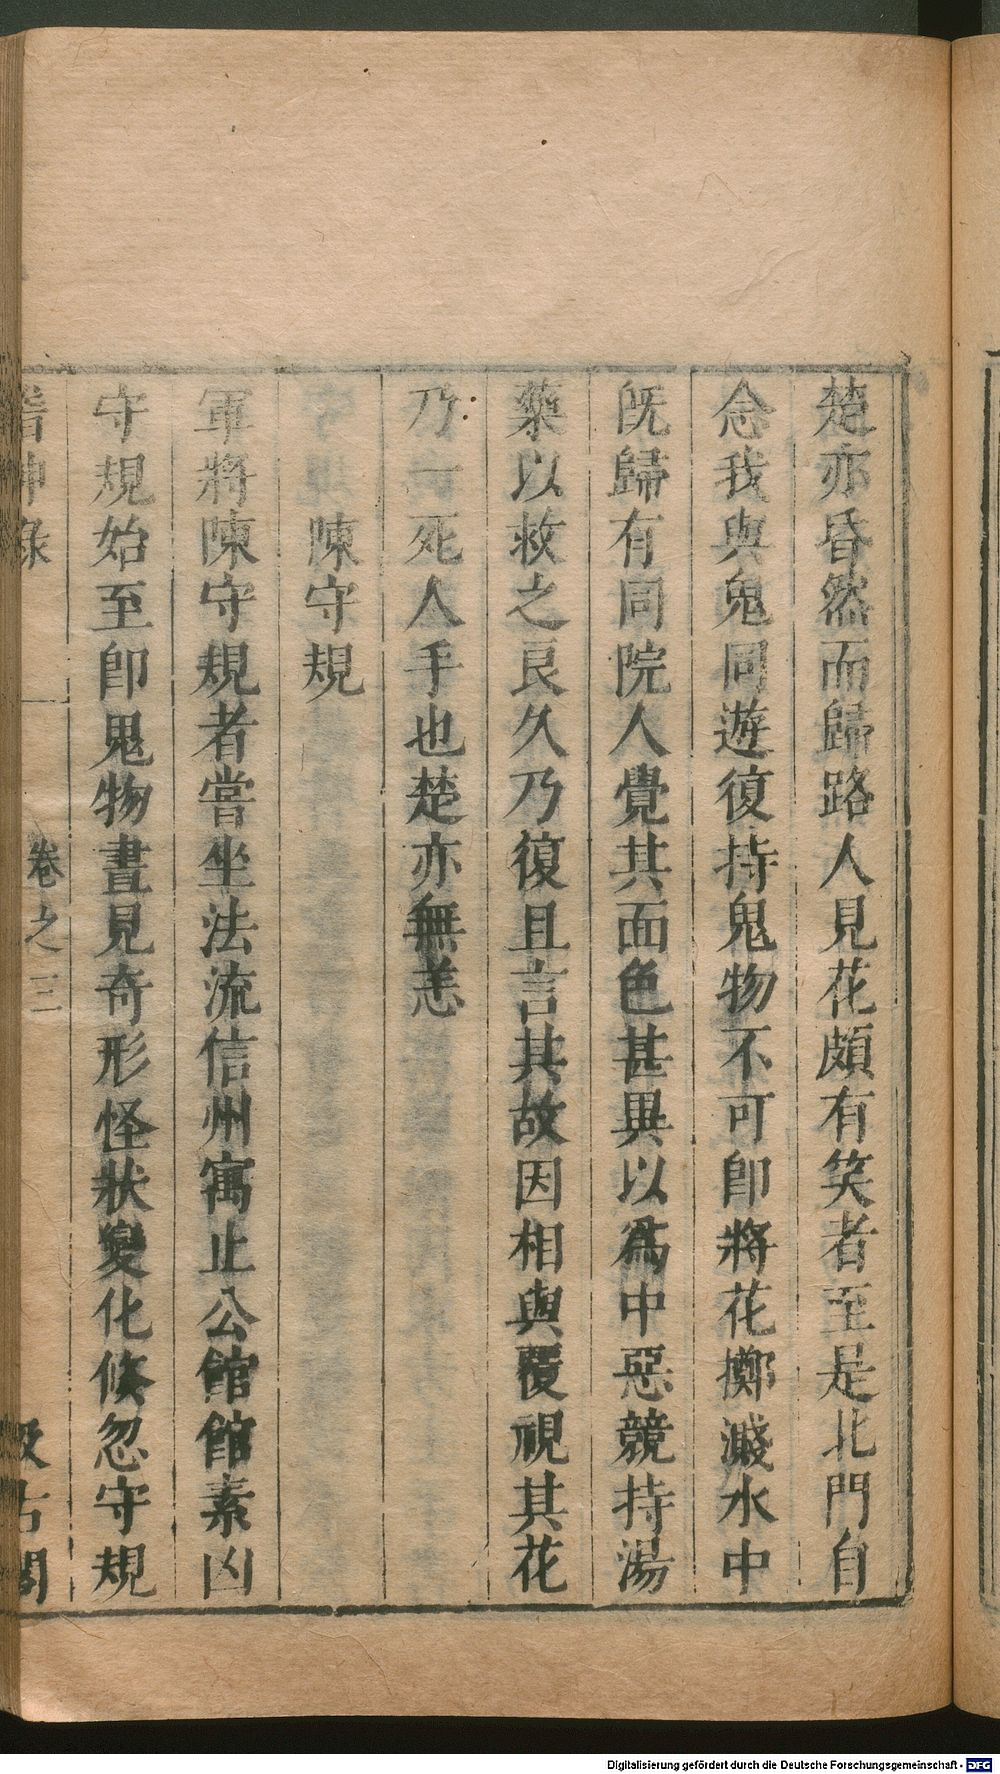 楚亦昏然而歸路人見花頗有笑者至是北門自
念我與鬼同遊復持鬼物不可卽將花擲濺水中
旣歸有同院人覺其面色甚異以爲中惡競持湯
藥以救之良久乃復且言其故因相與覆視其花
乃一死人手也楚亦無恙
陳守規
軍將陳守規者嘗坐法流信州寓止公館館素凶
守規始至卽鬼物晝見奇形怪狀變化倏忽守規
稽神錄
卷之三
汲古閣
Digitalisierung gefördert durch die Deutsche Forschungsgemeinschaft - DFG